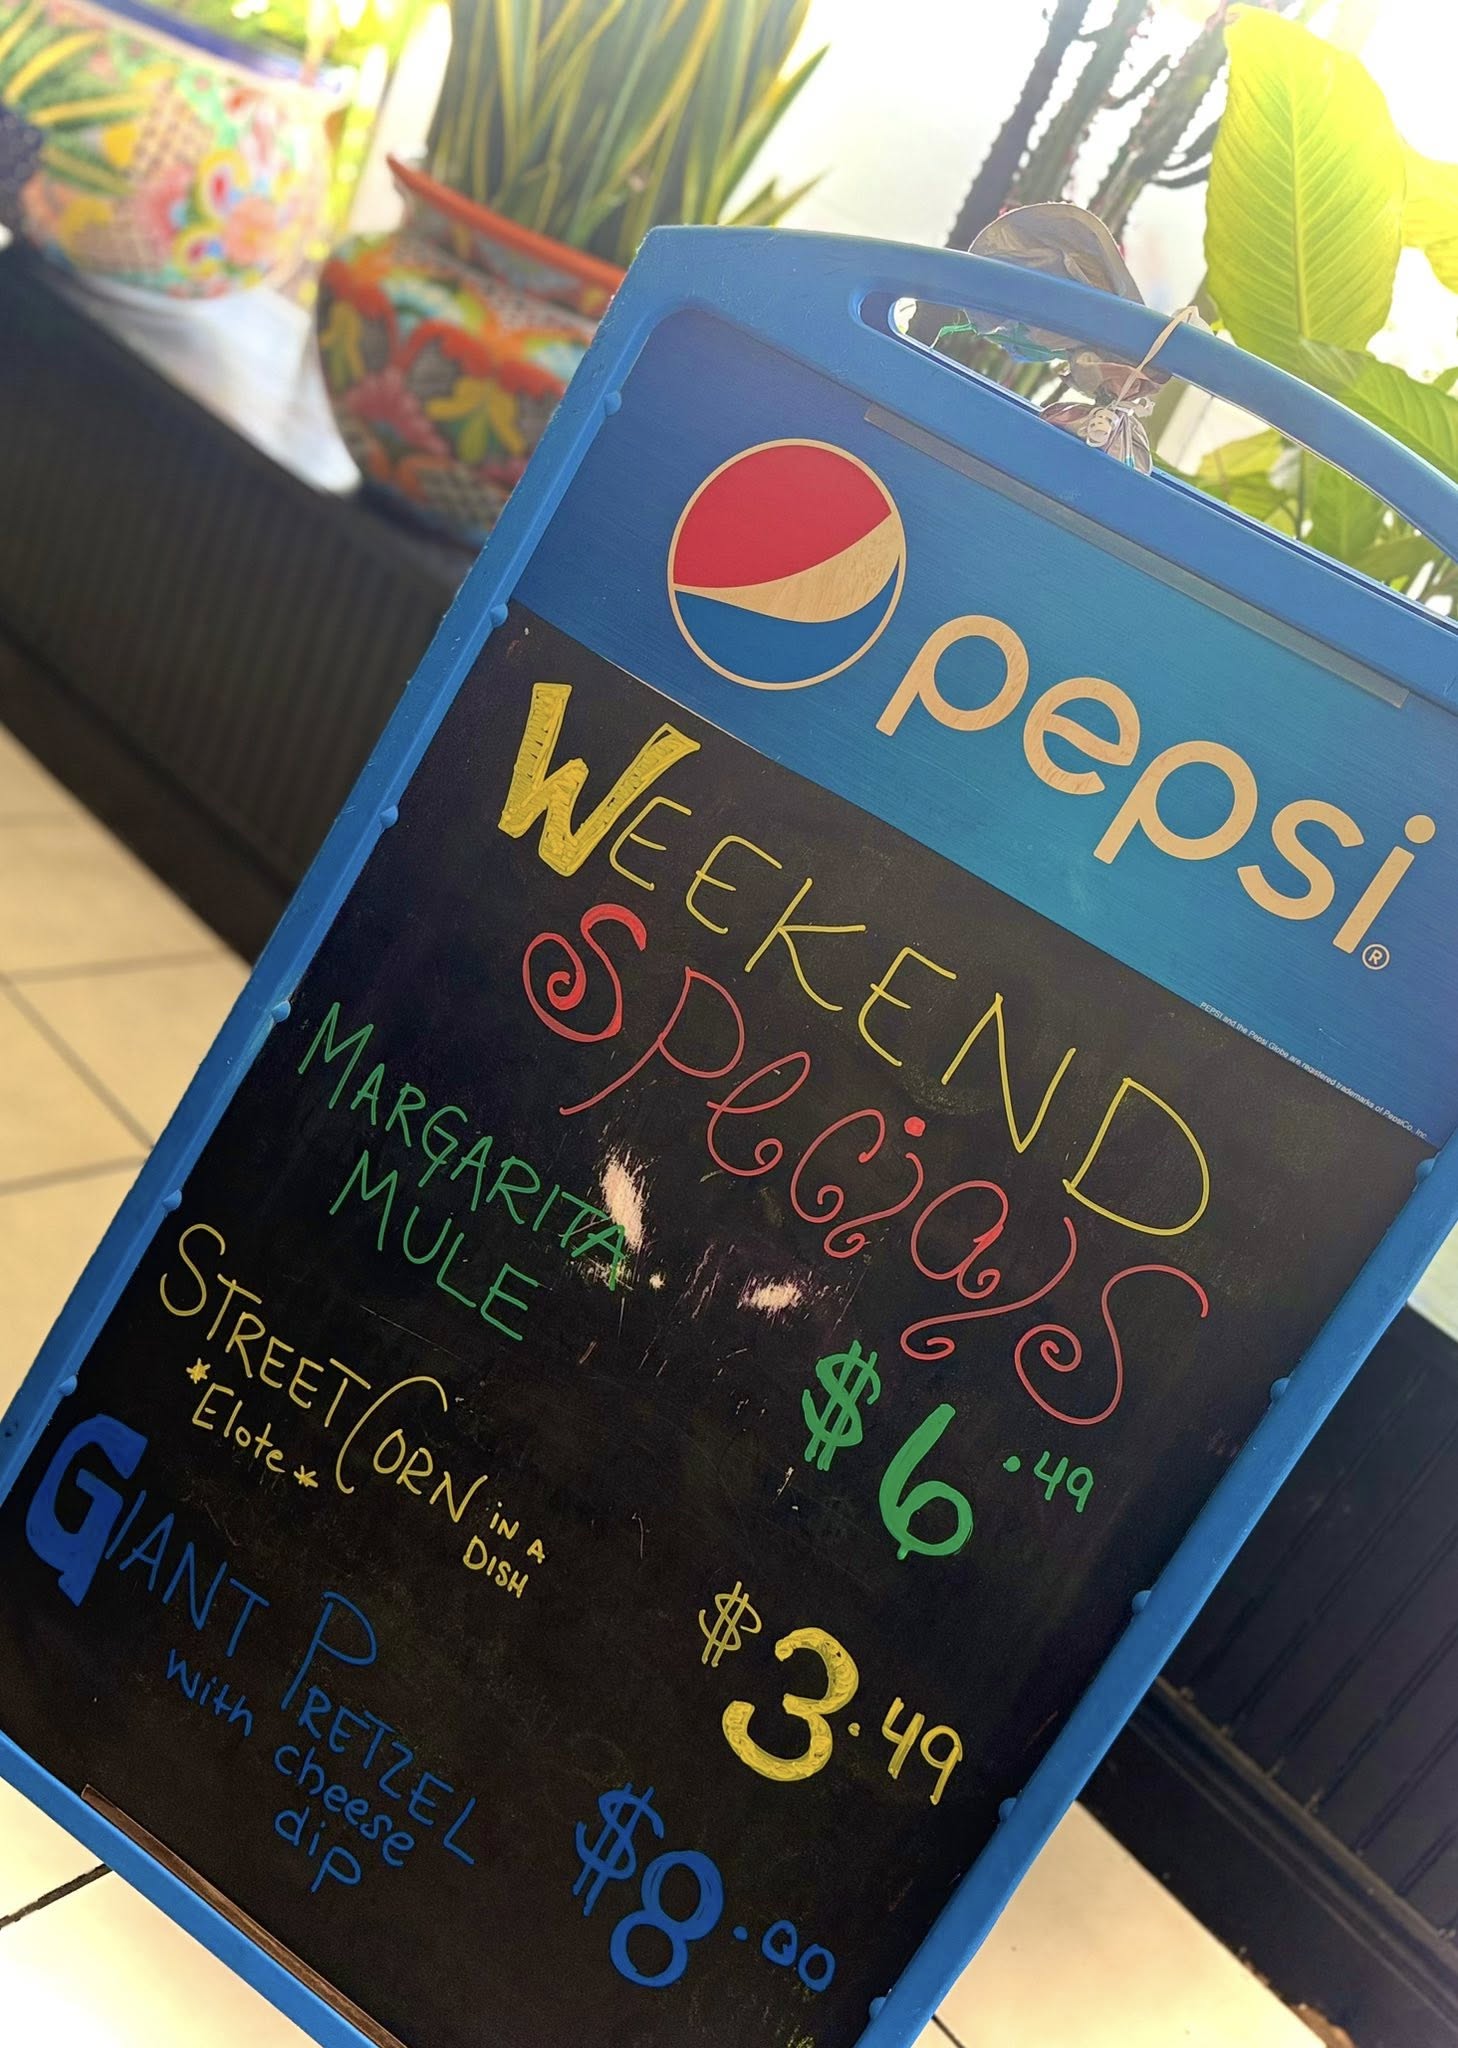 pepsi®
PEPSI and the Pepsi Globe are registered trademarks of PepsiCo, Inc.
WEEKEND
Specials
MARGARITA
MULE
$6.49
STREET CORN IN A
DISH
*Elote*
$3.49
GIANT PRETZEL
with cheese
dip
$8.00